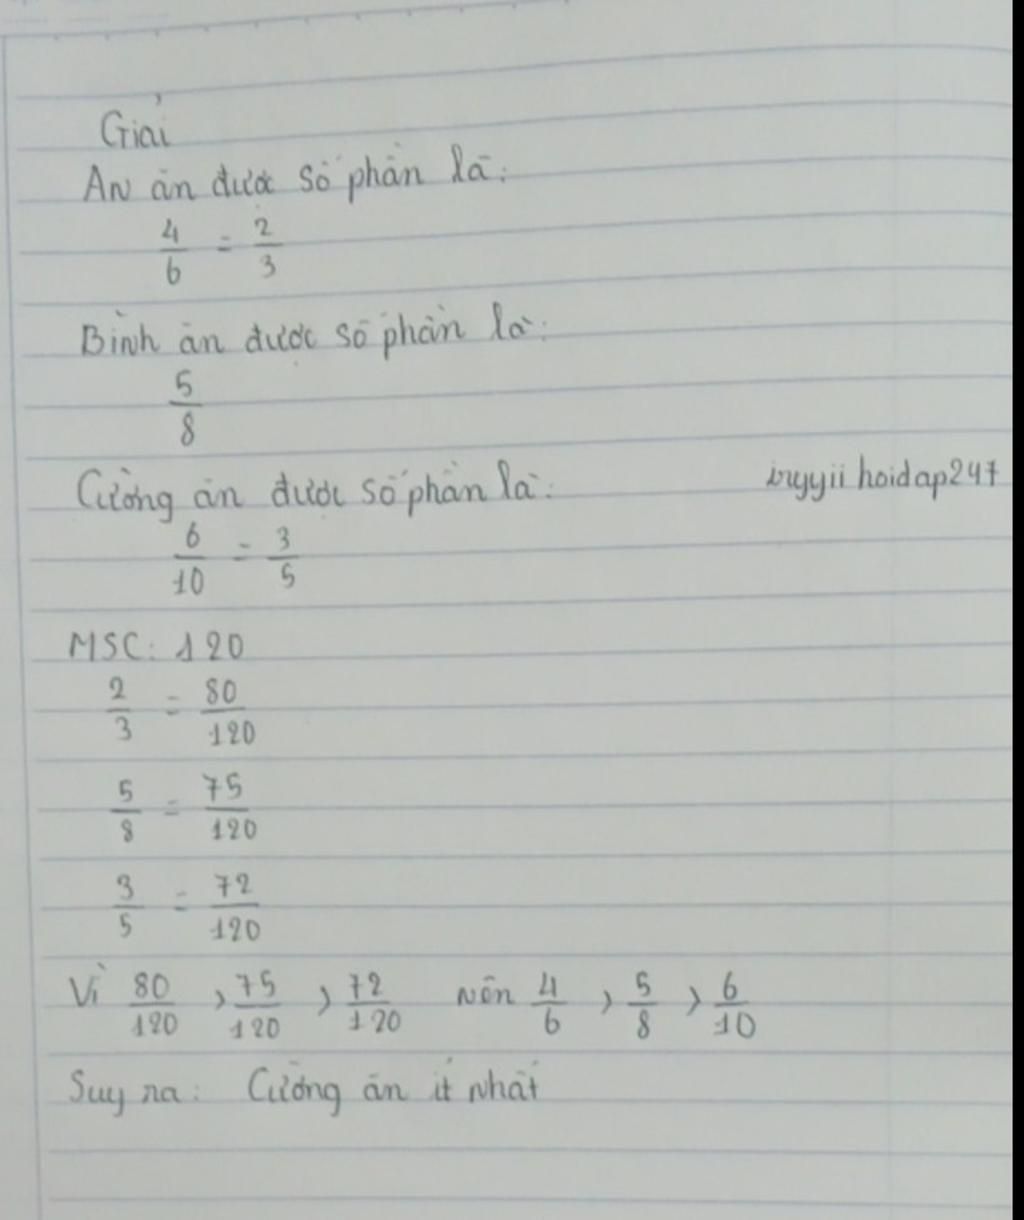 Giải
An ăn được số phần là:
4/6 = 2/3
Bình ăn được số phần là:
5/8
Cường ăn được số phần là:
hoidap247
6/10 = 3/5
MSC: 120
2/3 = 80/120
5/8 = 75/120
3/5 = 72/120
Vì 80/120 > 75/120 > 72/120 nên 4/6 > 5/8 > 6/10
Suy ra: Cường ăn ít nhất